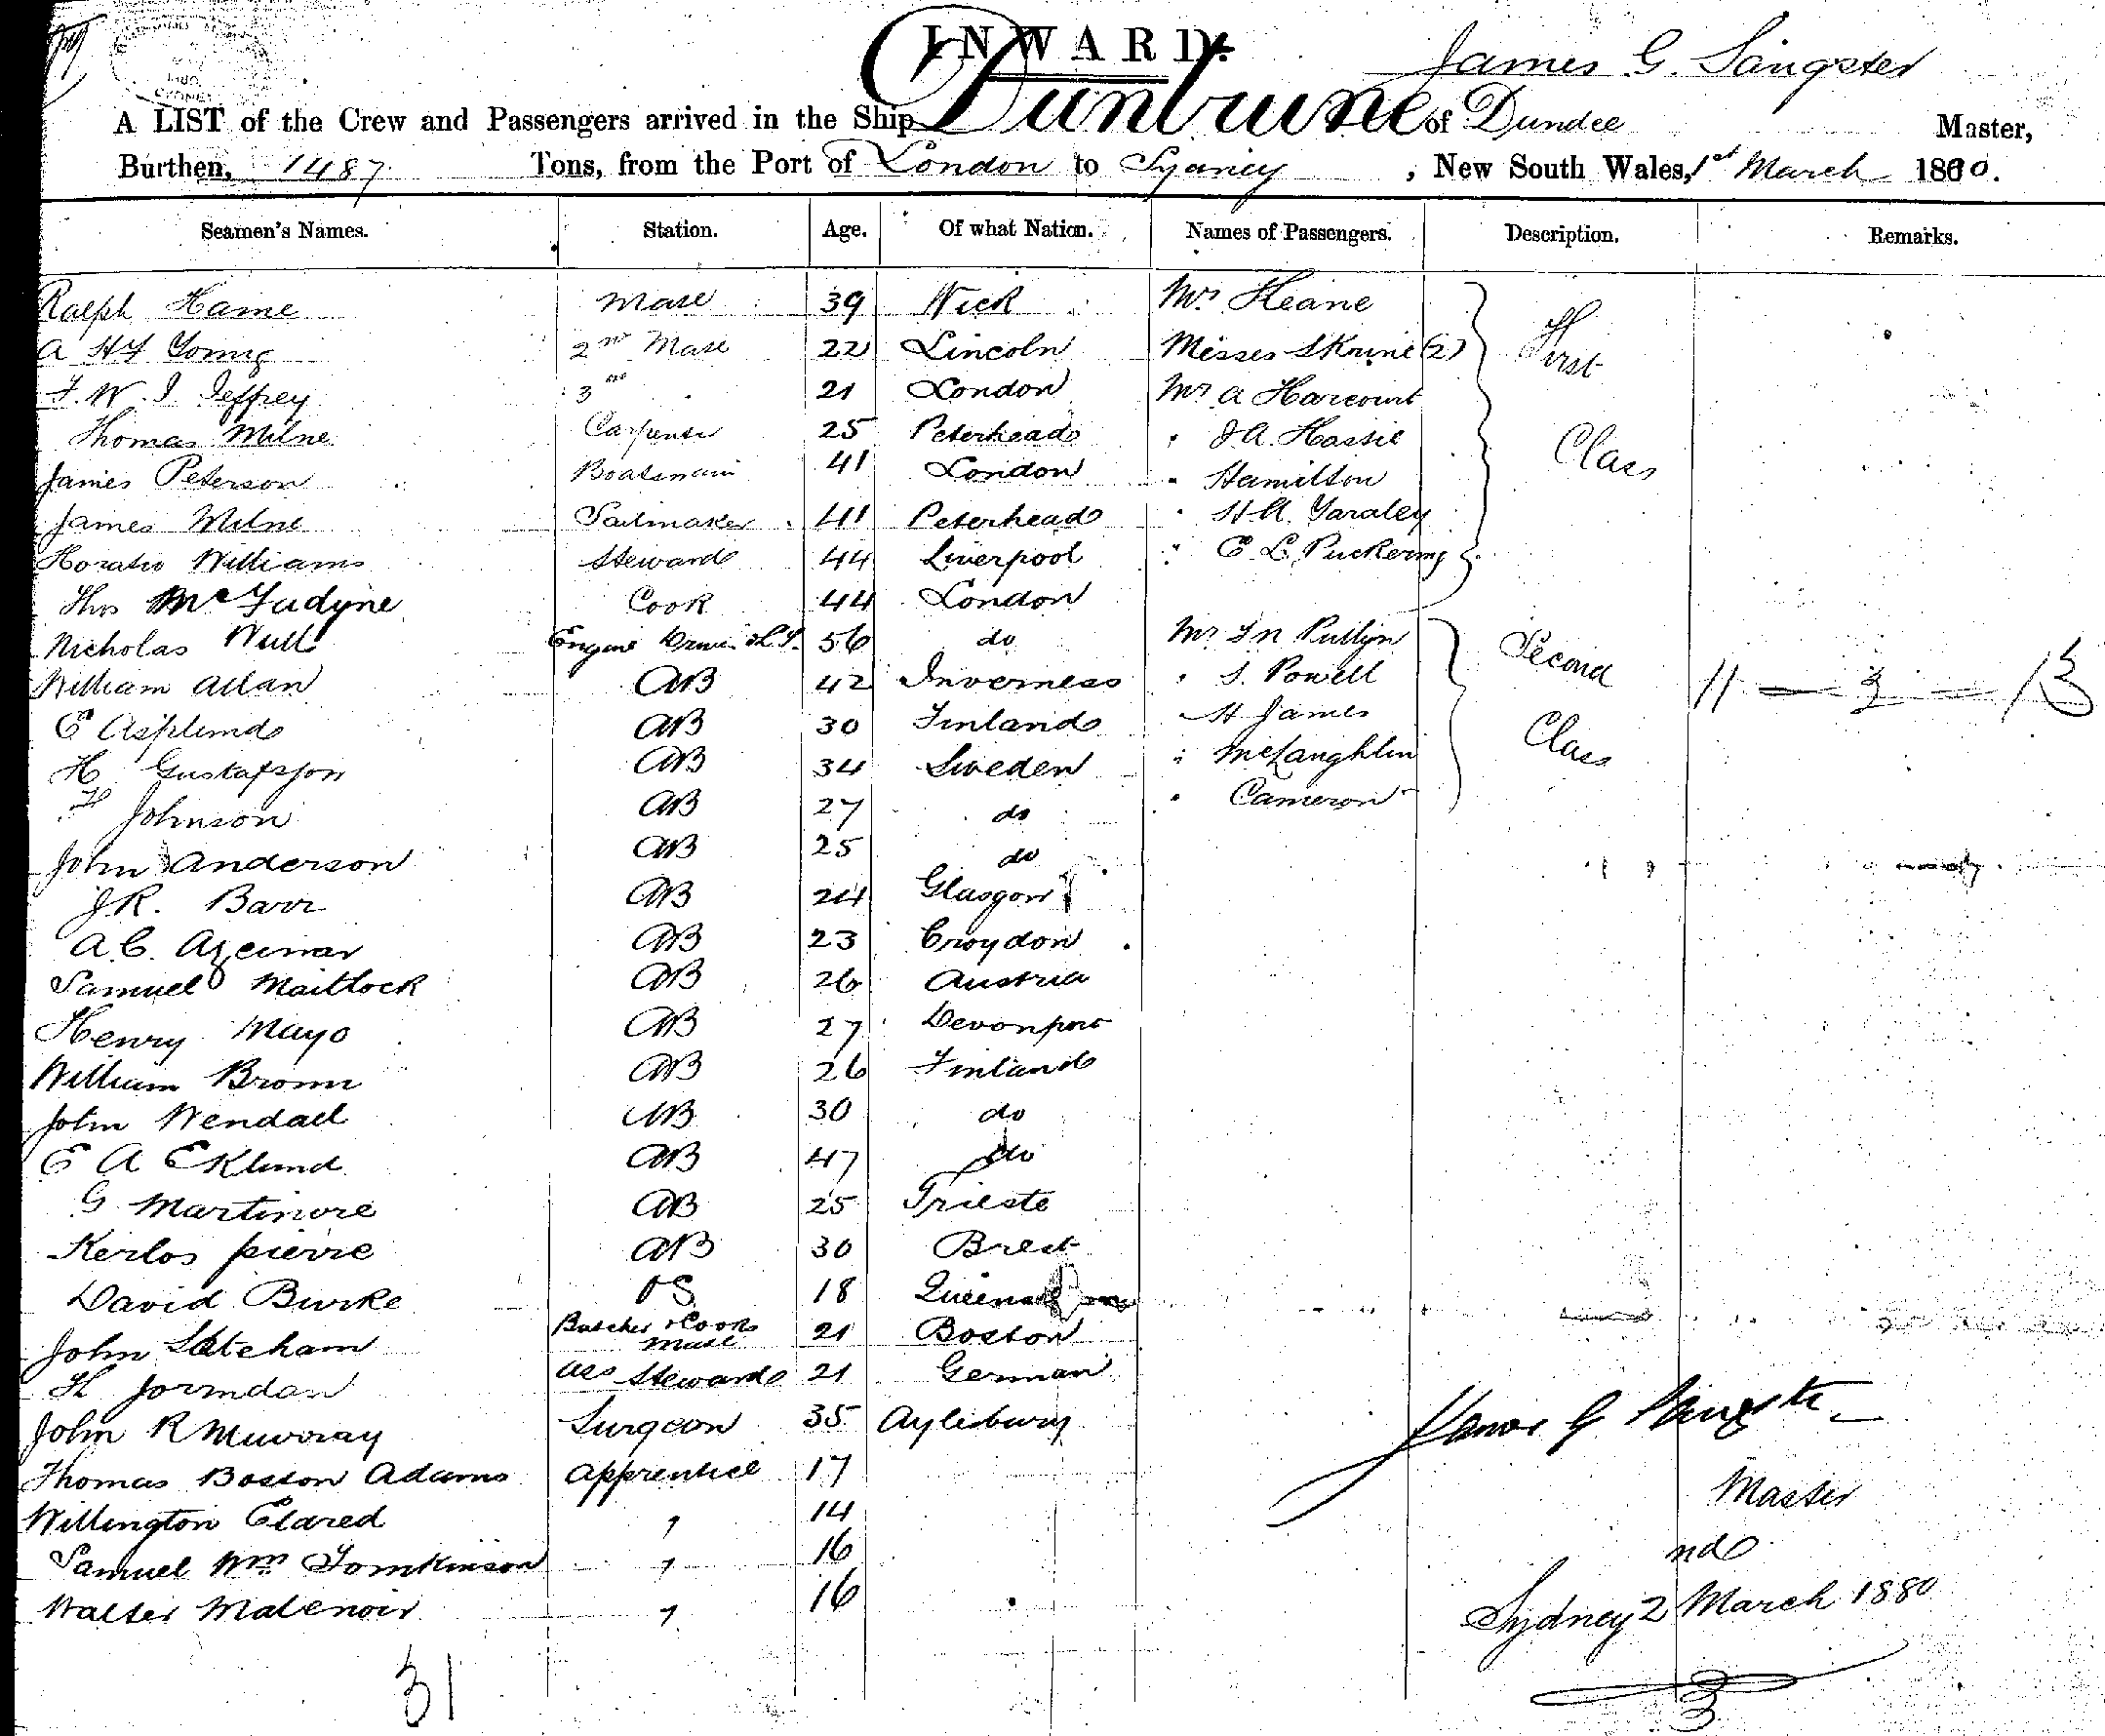 INWARD.
James G. Sangster
A LIST of the Crew and Passengers arrived in the Ship Duntrune of Dundee Master,
Burthen, 1487 Tons, from the Port of London to Sydney, New South Wales, 1st March 1880.
Seamen's Names. Station. Age. Of what Nation. Names of Passengers. Description. Remarks.
Ralph Hame Mate 39 Wick Mrs Keane First
A H F Young 2nd Mate 22 Lincoln Misses Skrine (2)
F. W. J Jeffrey 3rd " 21 London Mr A Harcourt
Thomas Milne Carpenter 25 Peterhead " J A. Hassie Class
James Peterson Boatswain 41 London " Hamilton
James Milne Sailmaker 41 Peterhead " H. A. Yaraley
Horatio Williams Steward 44 Liverpool " E L Puckering
Thos McFadyne Cook 44 London
Nicholas Engine 56 do Mr Pullyn Second
William Allan AB 42 Inverness " S. Powell 11 — 2 — 13
E Asplund AB 30 Finland " H James
H Gustafsson AB 34 Sweden " McLaughlin Class
F Johnson AB 27 do " Cameron
John Anderson AB 25 do
J. R. Barr AB 24 Glasgow
A. C. AB 23 Croydon
Samuel Maitlock AB 26 Austria
Henry Mayo AB 27 Devonport
William Brown AB 26 Finland
John Wendall AB 30 do
E A Eklund AB 47 do
G Martinore AB 25 Trieste
Kerlos pierre AB 30 Brest
David Burke OS 18
John Stateham Butcher & Cooks Mate 21 Boston
H Jorndan Ass Steward 21 German
John R Murray Surgeon 35 Aylesbury James G Sangster
Thomas Boston Adams Apprentice 17 Master
Willington Eldred " 14
Samuel Wm Tomkinson " 16
Walter Malenoir " 16 Sydney 2nd March 1880
31